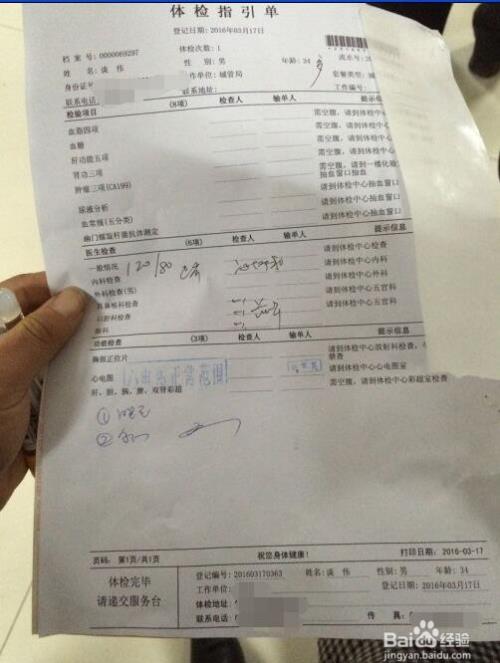 体检指引单
登记日期：2016年03月17日
档案号：0000069297 体检次数：1 流水号：2
姓 名：谈 伟 性 别：男 年龄：34 套餐类型：城
身份证 工作单位：城管局 工作编号：
联系电话： 联系地址：
检验项目 (8项) 检查人 输单人 提示信息
血脂四项 需空腹，请到体检中心
血糖 需空腹，请到体检中心
肝功能五项 需空腹，请到体检中心
肾功三项 需空腹，请到一楼化验
肿瘤三项(CA199) 抽血窗口抽血
尿液分析 请到体检中心抽血窗口
血常规(五分类) 请到体检中心抽血窗口
幽门螺旋杆菌抗体测定
医生检查 (6项) 检查人 输单人 提示信息
一般情况 120/80 请到体检中心检查
内科检查 请到体检中心内科
外科检查(男) 请到体检中心外科
耳鼻喉科检查 请到体检中心五官科
口腔科检查 请到体检中心五官科
眼科
功能检查 (3项) 检查人 输单人 提示信息
胸部正位片 请到体检中心放射科检查，
心电图 正常范围 请到体检中心心电图室
肝，胆，胰，脾，双肾彩超 需空腹，请到体检中心彩超室检查
①
②
页码：第1页/共1页 祝您身体健康！ 打印日期：2016-03-17
体检完毕
请递交服务台
登记编号：201603170363 姓名：谈 伟 性别：男 年龄：34
工作单位： 登记日期：2016年03月17日
体检地址：
联系电话： 传 真：
Baidu经验
jingyan.baidu.com